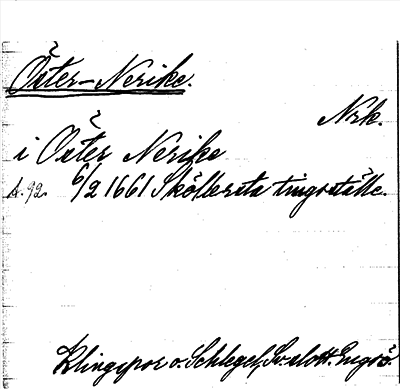 Öster-Nerike.
Nrk.
i Öster Nerike
s. 92. 6/2 1661 Sköllersta tingställe.
Klingspor o. Schlegel, Sv. slott. Engsö.